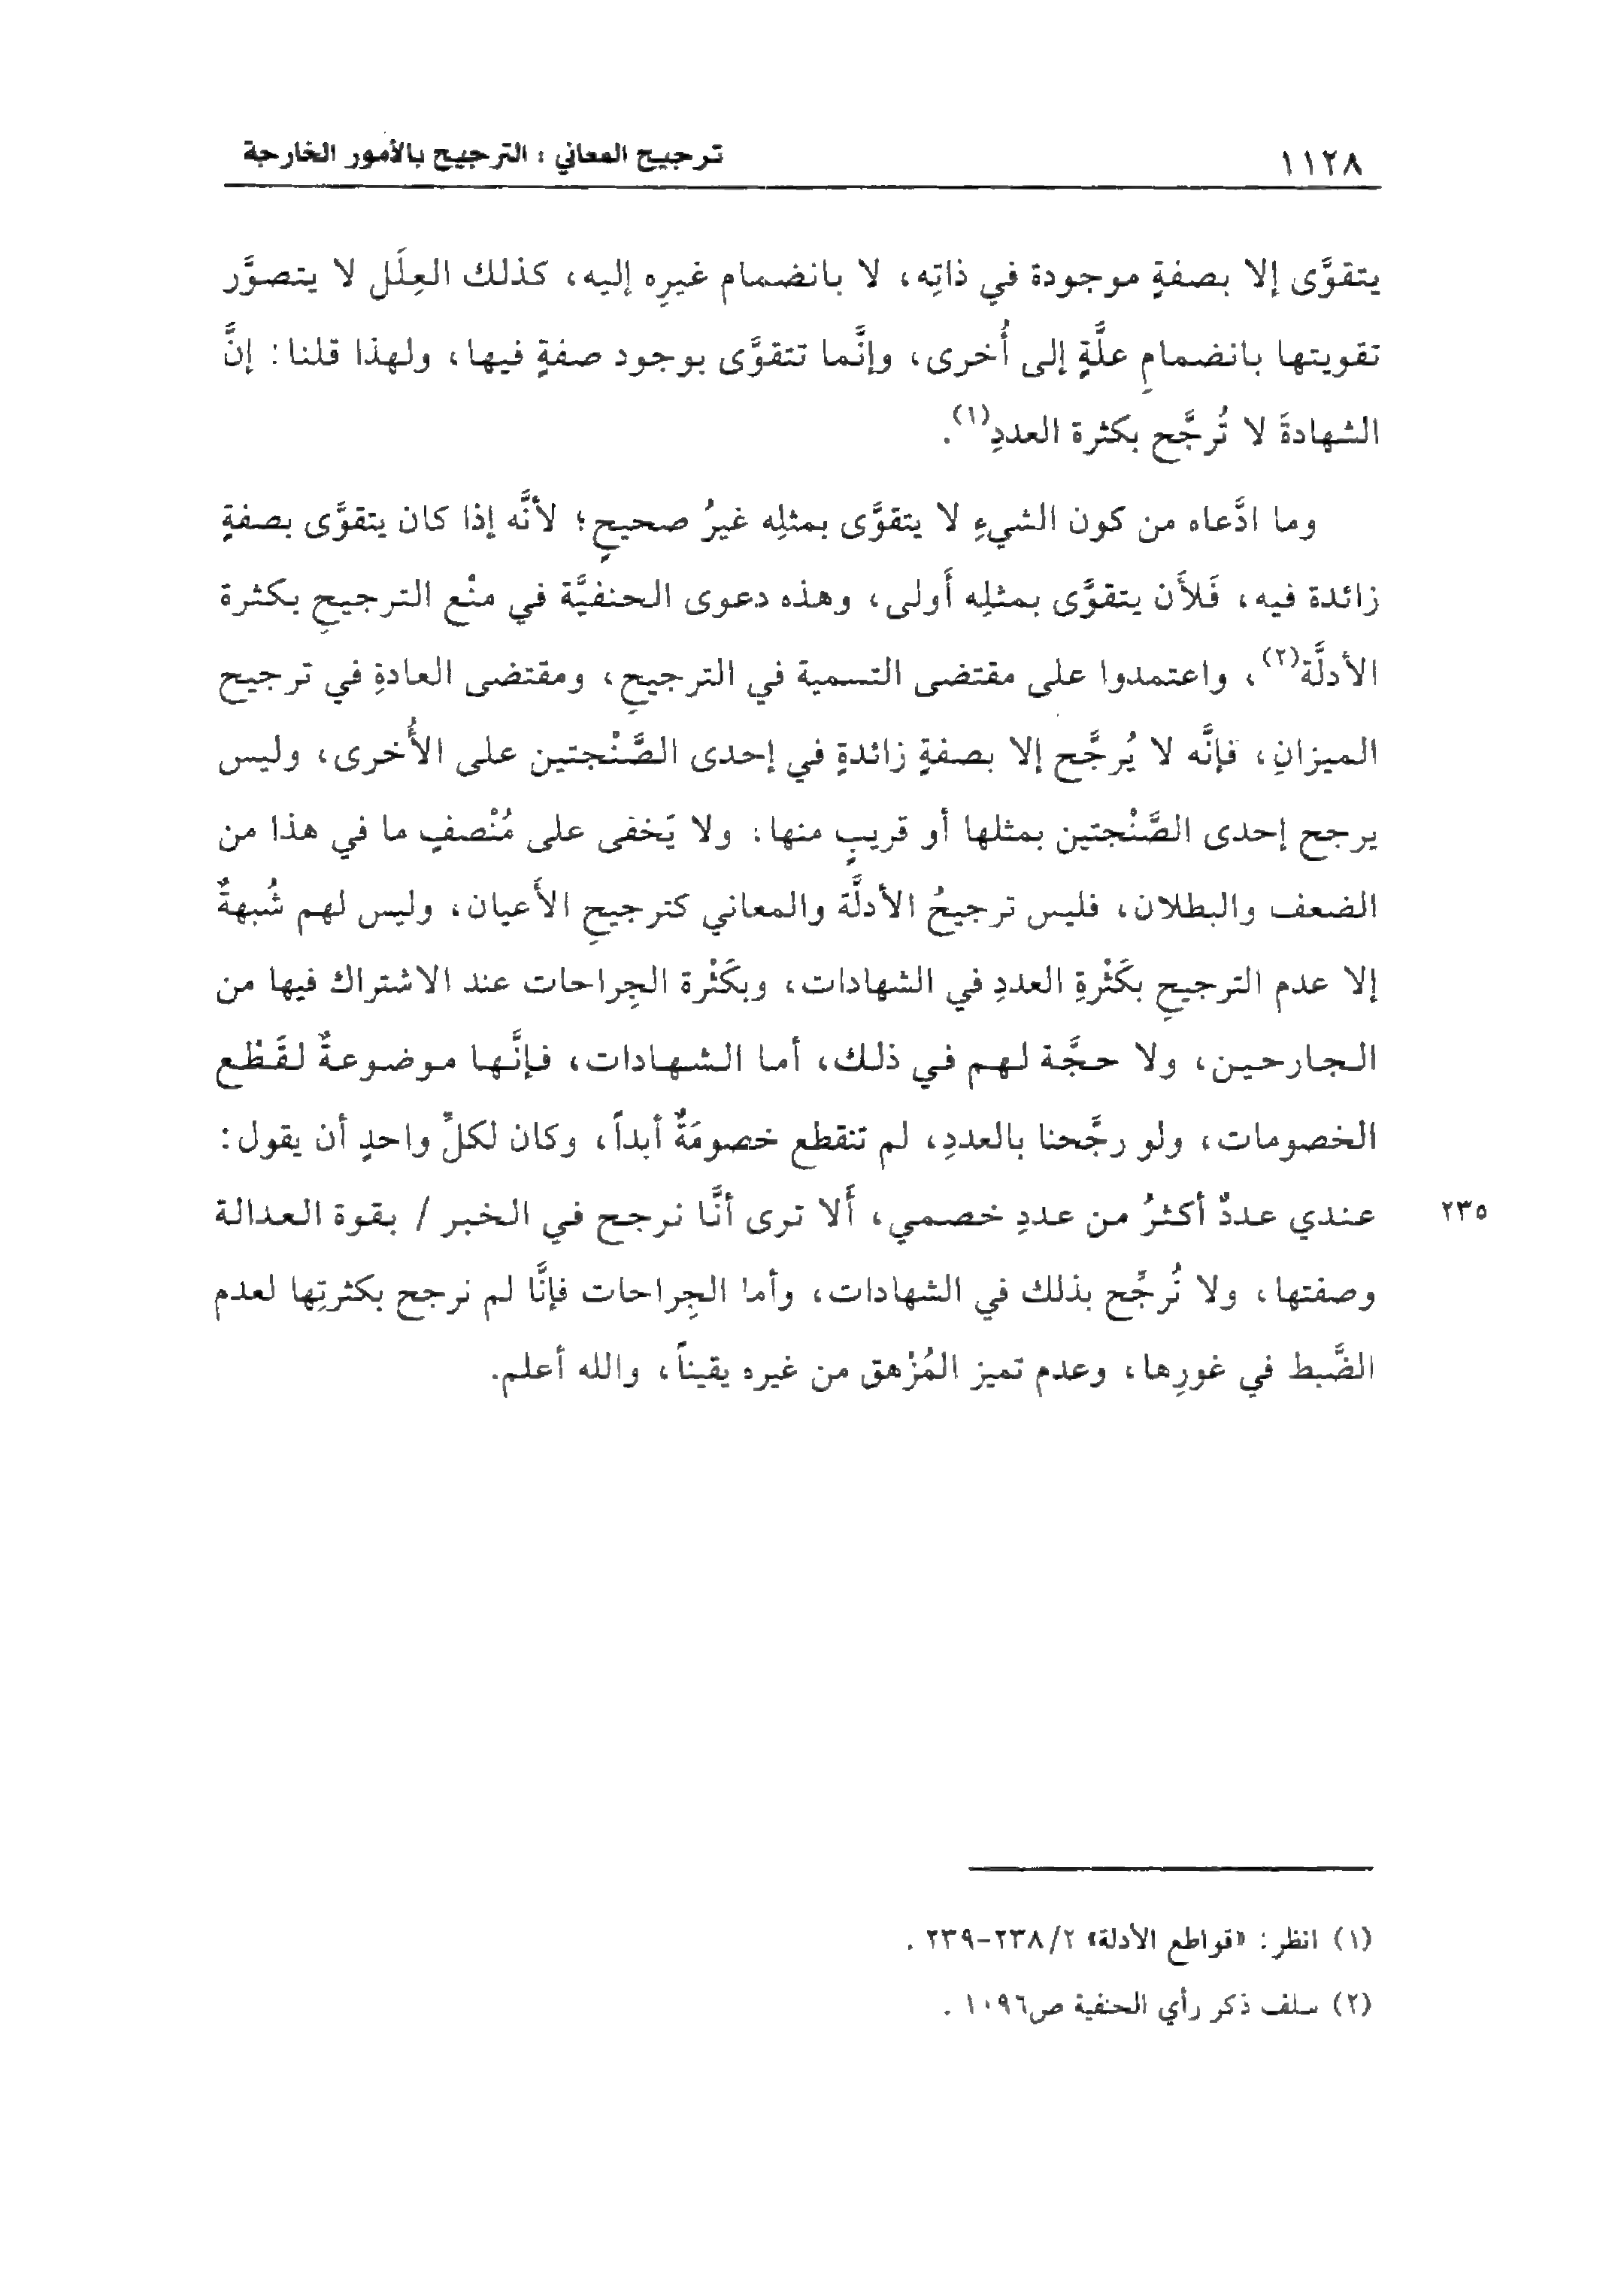 ١١٢٨ ترجيح المعاني : الترجيح بالأمور الخارجة
يتقوَّى إلا بصفةٍ موجودة في ذاتِه، لا بانضمام غيرِه إليه، كذلك العِلَل لا يتصوَّر
تقويتها بانضمامِ علَّةٍ إلى أُخرى، وإنَّما تتقوَّى بوجود صفةٍ فيها، ولهذا قلنا: إنَّ
الشهادةَ لا تُرجَّح بكثرة العددِ(١).
وما ادَّعاه من كون الشيءِ لا يتقوَّى بمثلِه غيرُ صحيحٍ؛ لأنَّه إذا كان يتقوَّى بصفةٍ
زائدة فيه، فَلأَن يتقوَّى بمثلِه أَولى، وهذه دعوى الحنفيَّة في منْع الترجيحِ بكثرة
الأدلَّة(٢)، واعتمدوا على مقتضى التسمية في الترجيحِ، ومقتضى العادةِ في ترجيح
الميزانِ، فإنَّه لا يُرجَّح إلا بصفةٍ زائدةٍ في إحدى الصَّنْجتين على الأُخرى، وليس
يرجح إحدى الصَّنْجتين بمثلها أو قريبٍ منها، ولا يَخفى على مُنْصفٍ ما في هذا من
الضعف والبطلان، فليس ترجيحُ الأدلَّة والمعاني كترجيحِ الأَعيان، وليس لهم شُبهةٌ
إلا عدم الترجيحِ بكَثْرةِ العددِ في الشهادات، وبكَثْرة الجِراحات عند الاشتراك فيها من
الجارحين، ولا حجَّة لهم في ذلك، أما الشهادات، فإنَّها موضوعةٌ لقَطْع
الخصومات، ولو رجَّحنا بالعددِ، لم تنقطع خصومَةٌ أبداً، وكان لكلِّ واحدٍ أن يقول:
عندي عددٌ أكثرُ من عددِ خصمي، أَلا ترى أنَّا نرجح في الخبر / بقوة العدالة ٢٣٥
وصفتها، ولا نُرجِّح بذلك في الشهادات، وأما الجِراحات فإنَّا لم نرجح بكثرتِها لعدم
الضَّبط في غورِها، وعدم تميز المُزْهق من غيره يقيناً، والله أعلم.
(١) انظر: «قواطع الأدلة» ٢/ ٢٣٨-٢٣٩ .
(٢) سلف ذكر رأي الحنفية ص١٠٩٦ .